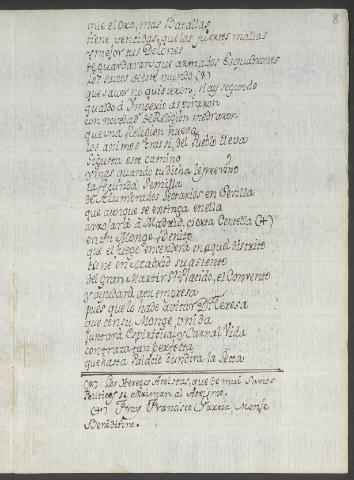 8
que el Oro, mas Batallas
tiene vencidas, que las fuertes mallas
y mejor tus Dolones
te guardaran que armados Esquadrones
los savios deste mundo (*)
que saver no quisieron, si ay segundo
qualdo à Ymperio aspiraron
con novedad de Religion medraron
que una Religion nueva
los animos tras si, del Pueblo lleva
sigueta este camino
y mas quando tu dicha le previno
la fecunda Semilla
de Alumbrados Sectarios en Sevilla
que aunque se extinga en ella
arrojarà à Madrid, cierta Centella (+)
en Un Monge Benito
que el fuego encenderà en aquel distrito
tiene en Madrid su asiento
del gran Martir Sn. Placido, el Convento
y ayudarà a tu empresa
pues que lo hade avitar Da. Teresa
que con su Monge unida
juntarà Espiritual, y Carnal Vida
con traza tan perfecta
que hasta Palacio cundira la Secta
(*) los Hereges Ateistas, que de mui Savios
Politicos se arriman al Ateismo.
(+) Fray Francisco Garcia, Monje
Beneditino.